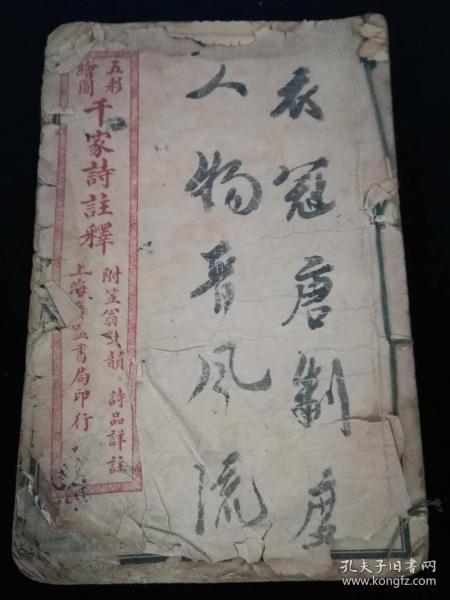 衣冠唐制度
人物晋风流
五彩
繪圖
千家詩註釋
附笠翁對韻 詩品詳註
上海益書局印行
孔夫子旧书网
www.kongfz.com